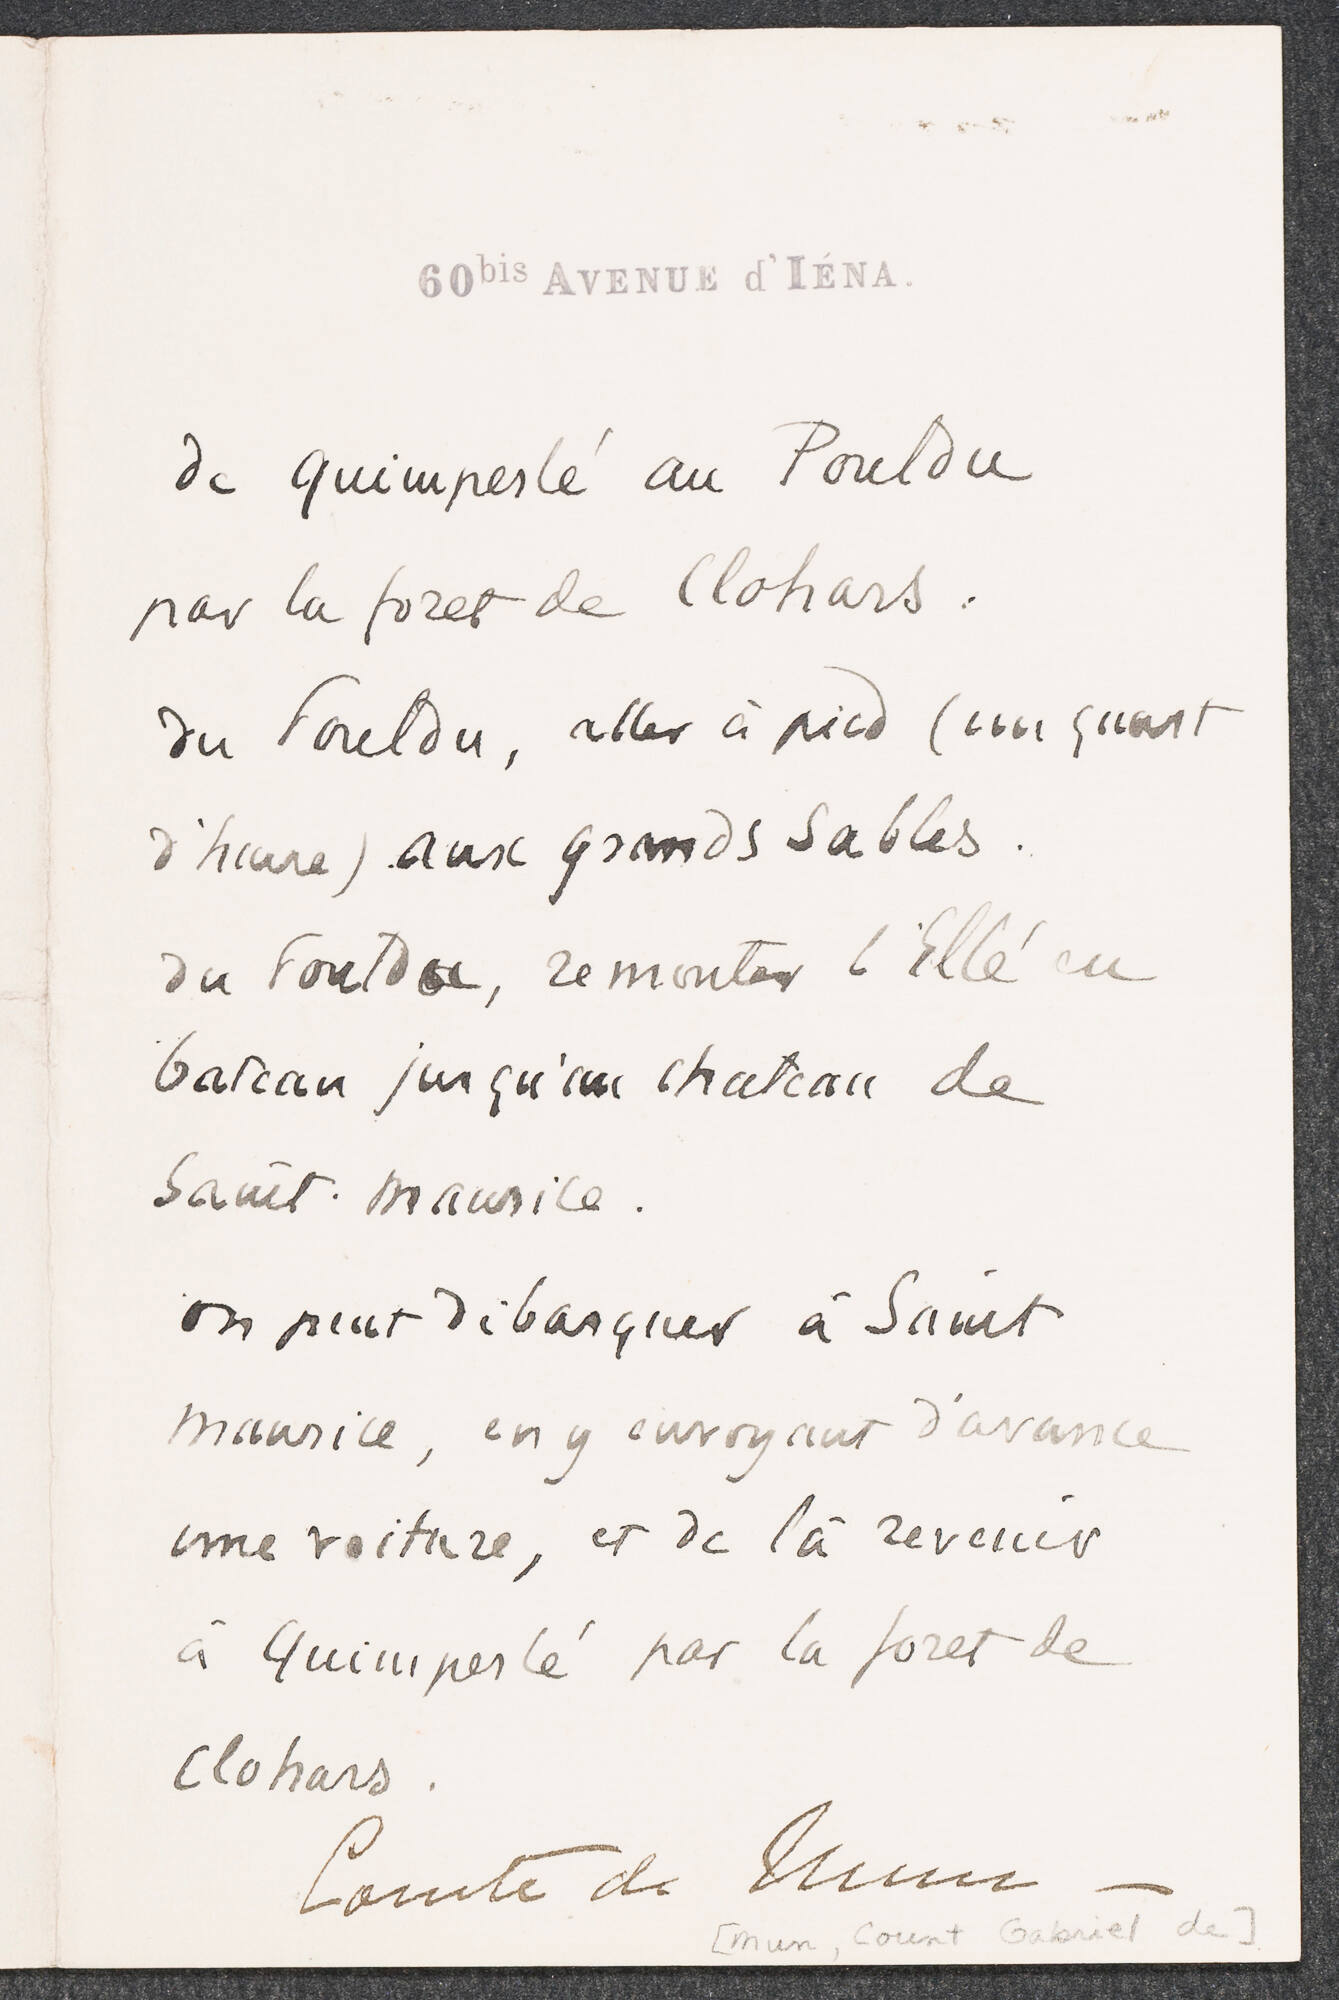 60bis AVENUE d'IÉNA.
de Quimperlé au Pouldu
par la foret de Clohars.
du Pouldu, aller à pied (un quart
d'heure) aux grands Sables.
du Pouldu, remonter l'Ellé en
bateau jusqu'au chateau de
Saint-Maurice.
on peut débarquer à Saint
Maurice, en y envoyant d'avance
une voiture, et de là revenir
à Quimperlé par la foret de
Clohars.
Comte de Mun —
[Mun, Count Gabriel de]